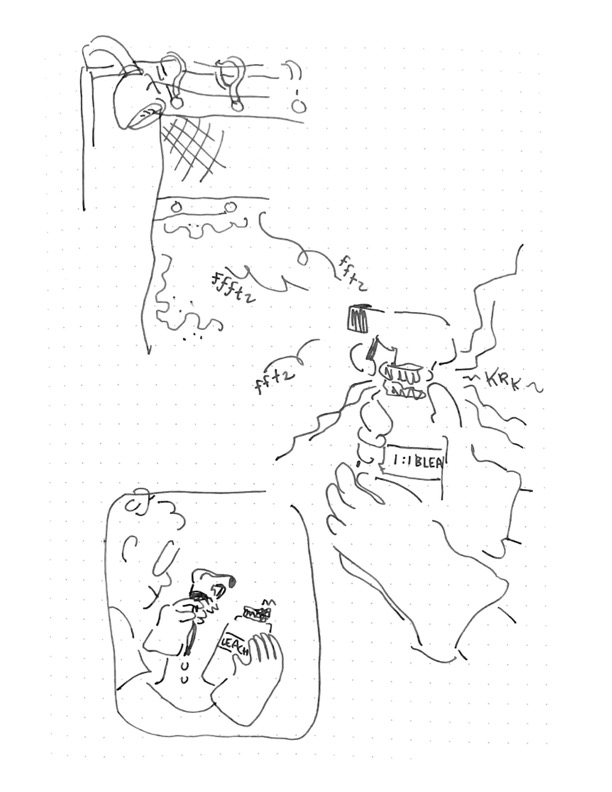 fftz
ffftz
fftz
~ KRK ~
1:1 BLEA
LEACH